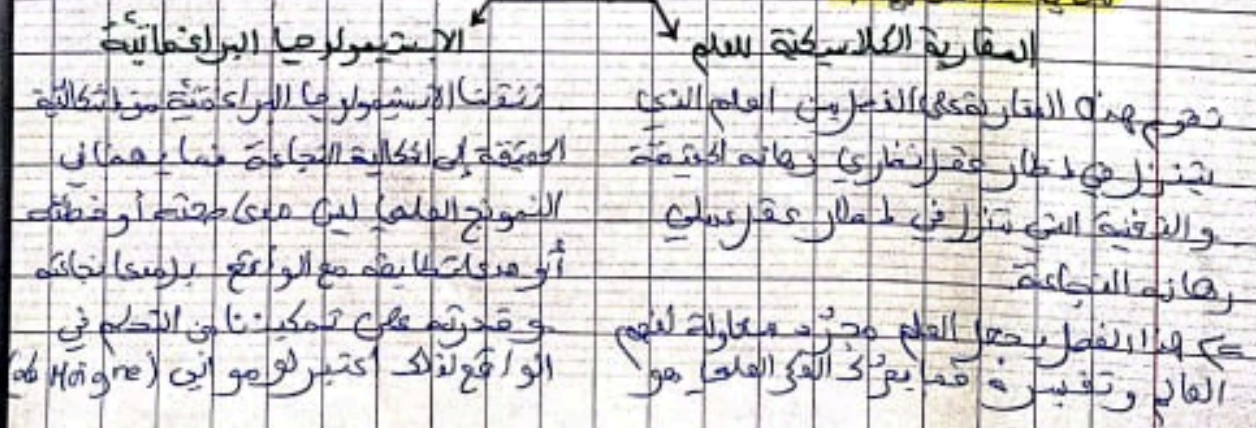 المقاربة الكلاسيكية للعلم
تقوم هذه المقاربة على الفصل بين العلم الذي
يتنزل في إطار عقل نظري رهانه الحقيقة
والتقنية التي تتنزل في إطار عقل عملي
رهانه النجاعة
=> هذا الفصل يجعل العلم مجرّد محاولة لفهم
العالم وتفسيره فما يحرّك الفكر العلمي هو
الابستيمولوجيا البراغماتية
تنقلنا الابستيمولوجيا البراغماتية من إشكالية
الحقيقة إلى إشكالية النجاعة فما يهمنا في
النموذج العلمي ليس مدى صحته أو خطئه
أو مدى تطابقه مع الواقع بل مدى نجاعته
و قدرته على تمكيننا من التحكم في
الواقع لذلك اعتبر لومواني (le Moigne)